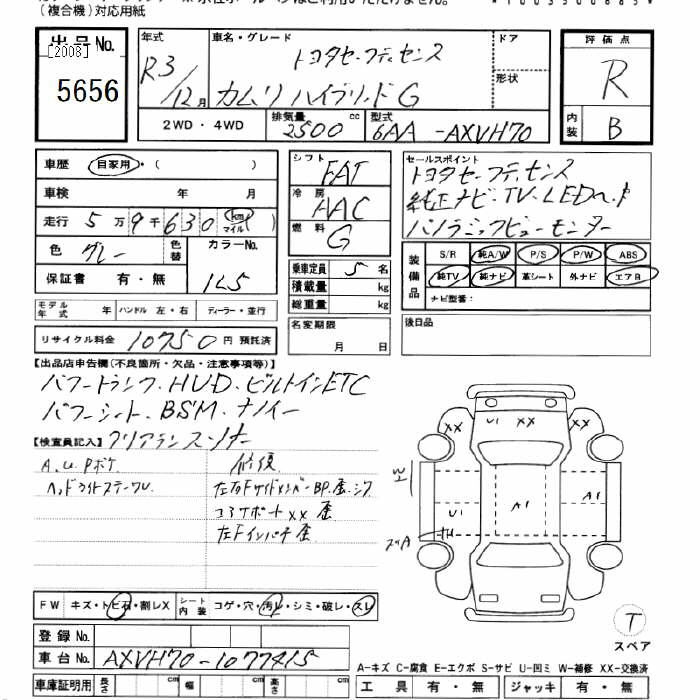 (複合機)対応用紙
出品No. 年式 車名・グレード ドア 評価点
[2008] トヨタセーフティセンス 形状 R
5656 R3/12月 カムリ ハイブリッド G 内装 B
2WD・4WD 排気量 2500 cc 型式 6AA-AXVH70
車歴 自家用・( )
車検 年 月
走行 5万9千630 km マイル
色 グレー 色替 カラーNo.
保証書 有・無 1L5
モデル年式 年 ハンドル 左・右 ディーラー・並行
リサイクル料金 10750円 預託済
シフト FAT
冷房 AAC
燃料 G
乗車定員 5 名
積載量 kg
総重量 kg
名変期限
月 日
セールスポイント
トヨタセーフティセンス
純正ナビ・TV・LEDヘッド
パノラミックビューモニター
装備品 S/R 純A/W P/S P/W ABS
純TV 純ナビ 革シート 外ナビ エアB
ナビ型番:
後日品
【出品店申告欄(不良箇所・欠品・注意事項等)】
パワートランク、HUD、ビルトインETC
パワーシート、BSM、ナノイー
【検査員記入】 クリアランスソナー
A、U、Pボケ
ヘッドライトステークU、
修復
コアサポートXX 歪
左Fインパネ 歪
U1 XX
XX XX
A1
A1
U1
ズリA
T
スペア
FW キズ・トビ石・割レX シート内装 コゲ・穴・汚レ・シミ・破レ・スレ
登録No.
車台No. AXVH70-1077415
車庫証明用 長さ cm 幅 cm 高さ cm
A-キズ C-腐食 E-エクボ S-サビ U-凹ミ W-補修 XX-交換済
工具 有・無 ジャッキ 有・無